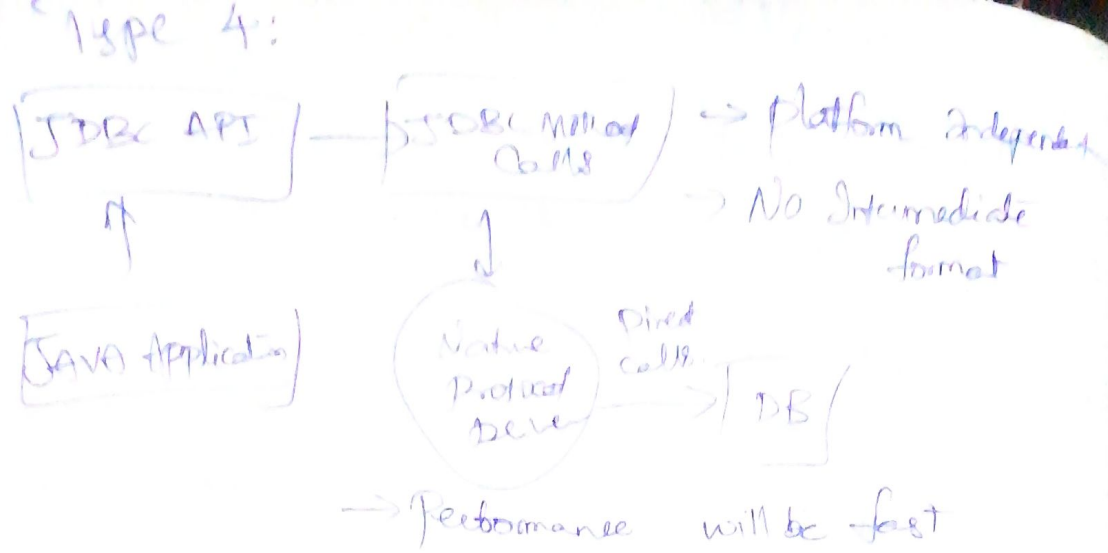 Type 4:
JDBC API
JDBC Method
Calls
→ Platform Independent
→ No Intermediate
format
JAVA Application
Native
Protocol
Driver
Direct
calls
DB
→ Performance will be fast